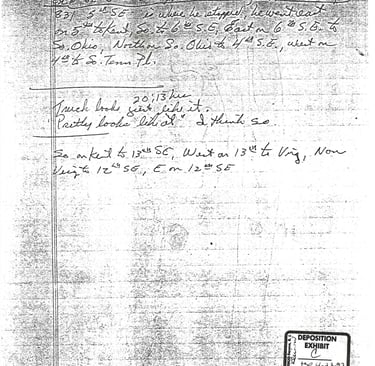 831 - 5th SE is where he stopped he went east
on 5th to Kent, So. to 6th S.E, East on 6th S.E. to
So. Ohio, North on So. Ohio to 4th S.E., west on
4th to So. Tenn Pl.
20:13 hrs
Truck looks just like it.
Pretty looks like it" I think so
So on Kent to 13th SE, West on 13th to Virg, No on
Virg to 12th SE, E on 12th SE
DEPOSITION
EXHIBIT
C